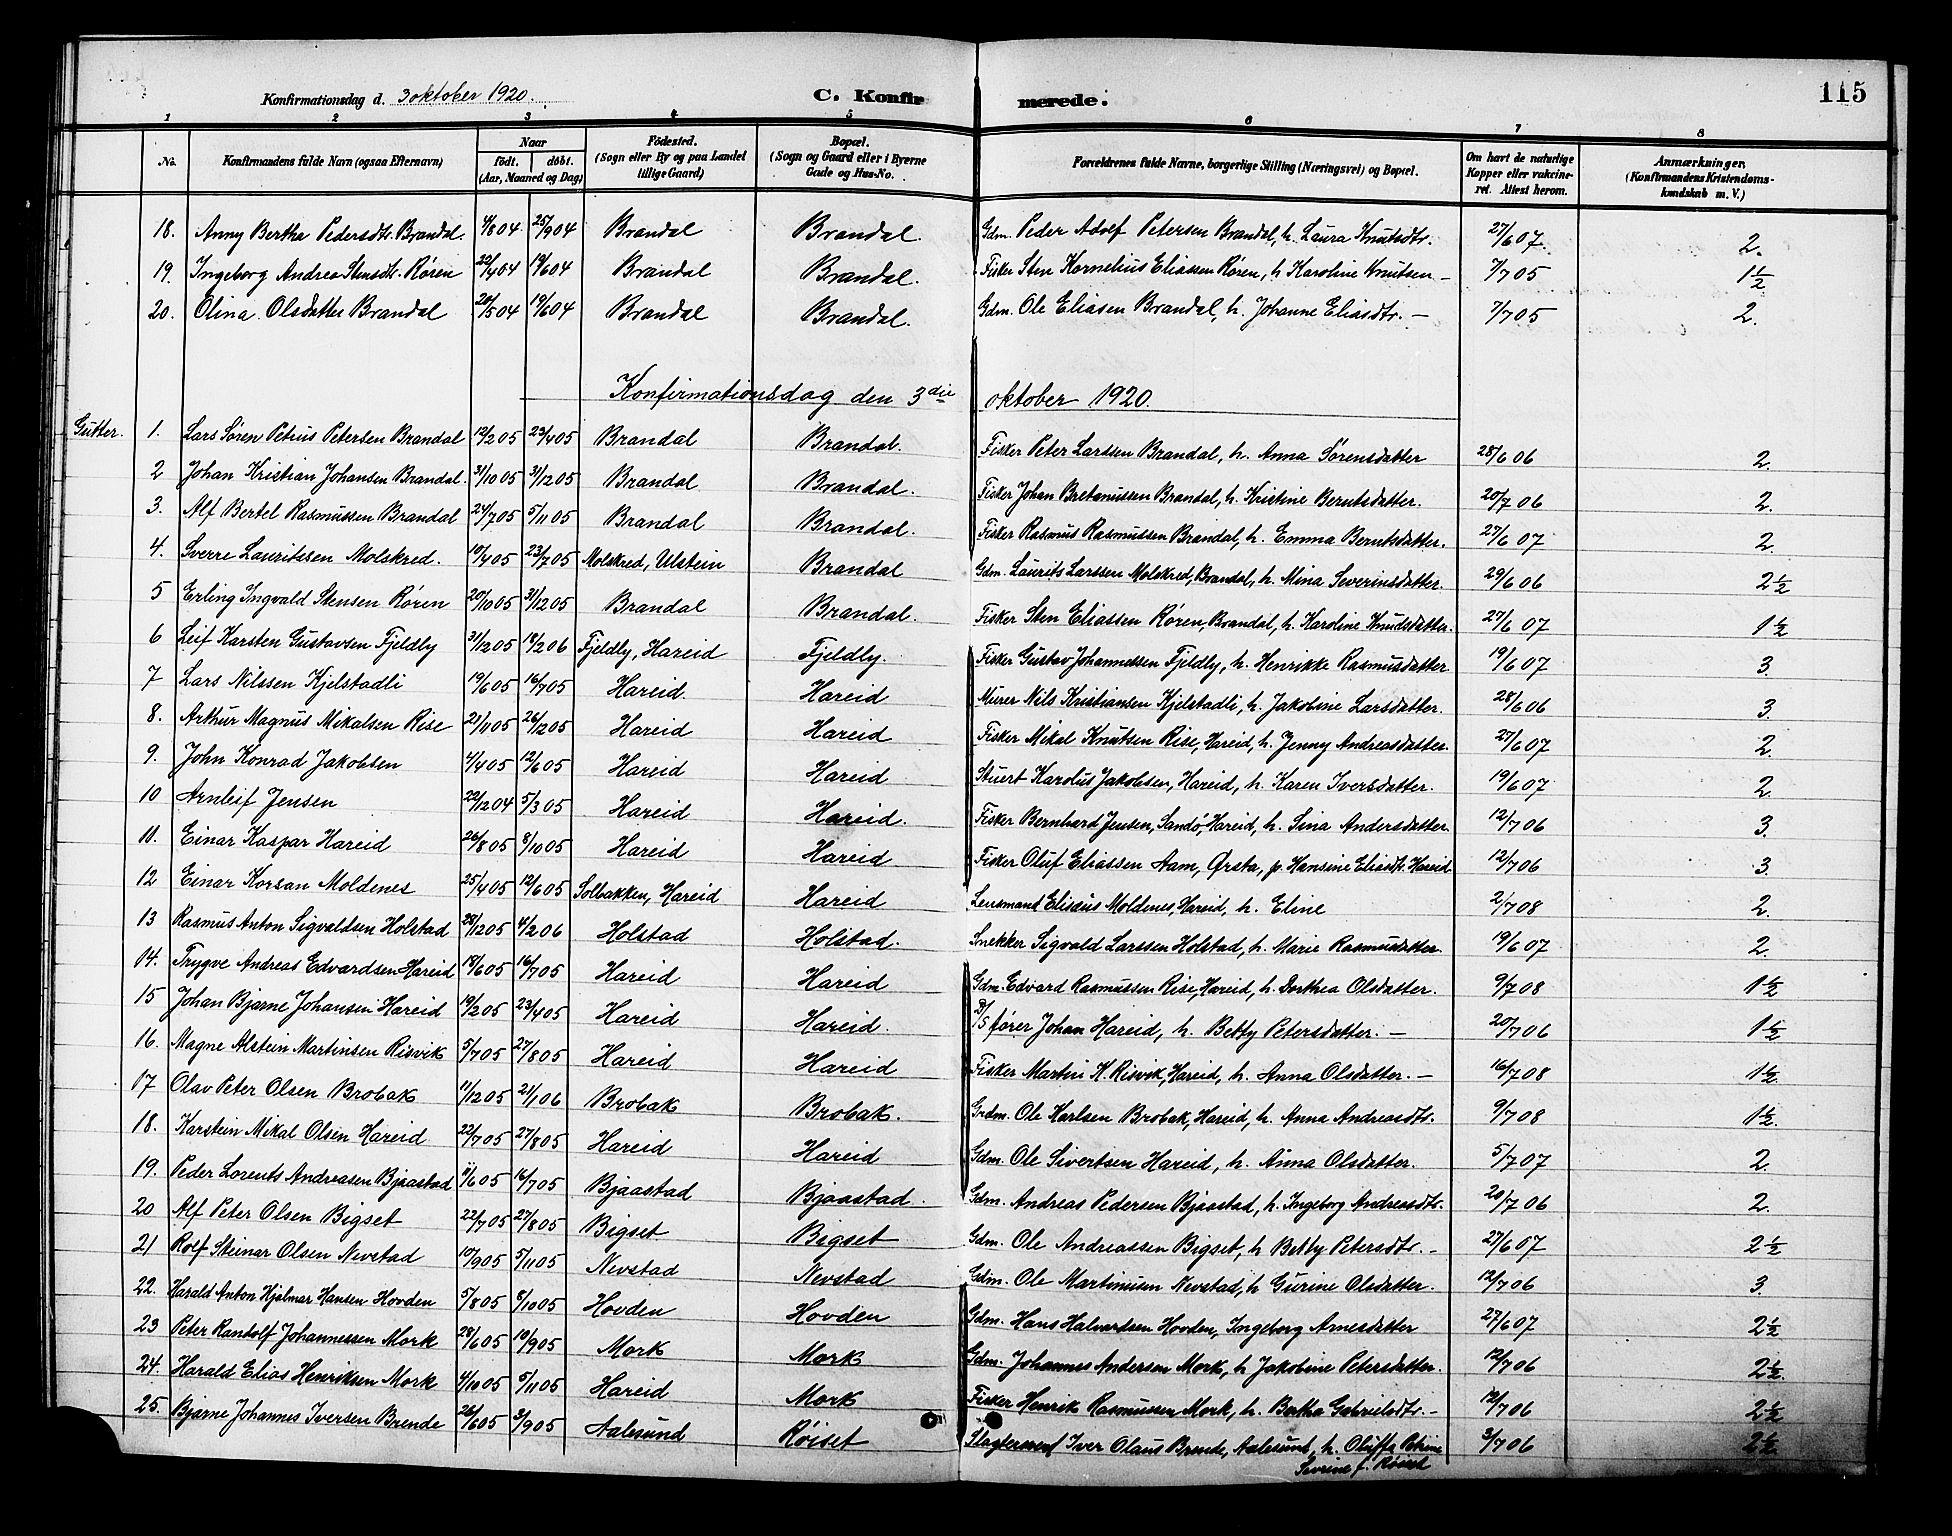 115
Konfirmationsdag d. 3 oktober 1920. C. Konfir merede.
1 2 3 4 5 6 7 8
No. Konfirmandens fulde Navn (ogsaa Efternavn) Naar født. døbt. (Aar, Maaned og Dag) Fødested. (Sogn eller By og paa Landet tillige Gaard) Bopæl. (Sogn og Gaard eller i Byerne Gade og Hus-No. Forældrenes fulde Navne, borgerlige Stilling (Næringsvei) og Bopæl. Om havt de naturlige Kopper eller vakcineret. Attest herom. Anmærkninger. (Konfirmandens Kristendomskundskab m. V.)
18. Anny Bertha Pedersdtr. Brandal 4/8 04 25/9 04 Brandal Brandal. Gdm. Peder Adolf Petersen Brandal, h. Laura Knutsdtr. 27/6 07. 2.
19. Ingeborg Andrea Stensdtr. Røren 22/4 04 19/6 04 Brandal Brandal. Fisker Sten Kornelius Eliassen Røren, h. Karoline Knutsen — 7/7 05 1½
20. Olina Olsdatter Brandal 20/5 04 19/6 04 Brandal Brandal. Gdm. Ole Eliasen Brandal, h. Johanne Eliasdtr. — 7/7 05 2.
Konfirmationsdag den 3die oktober 1920.
Gutter. 1. Lars Søren Petrus Petersen Brandal 12/2 05 23/4 05 Brandal Brandal. Fisker Peter Larssen Brandal, h. Anna Sørensdatter 28/6 06 2.
2 Johan Kristian Johansen Brandal. 31/10 05 31/12 05 Brandal Brandal. Fisker Johan Bretanussen Brandal, h. Kristine Berntsdatter. 20/7 06 2.
3. Alf Bertel Rasmussen Brandal 24/7 05 5/11 05 Brandal Brandal. Fisker Rasmus Rasmussen Brandal, h. Emma Berntsdatter. 27/6 07 2.
4. Sverre Lauritssen Molskred. 10/4 05 23/7 05 Molskred, Ulstein Brandal Gdm. Laurits Larssen Molskred, Brandal, h. Mina Severinsdatter. 29/6 06 2½
5 Erling Ingvald Stensen Røren 20/10 05 31/12 05 Brandal Brandal. Fisker Sten Eliassen Røren, Brandal, h. Karoline Knudsdatter. 27/6 07 1½
6 Leif Karsten Gustavsen Fjeldly 31/12 05 18/2 06 Fjeldly, Hareid Fjeldly. Fisker Gustav Johannessen Fjeldly, h. Henrikke Rasmusdatter 19/6 07 3.
7 Lars Nilssen Kjelstadli 19/6 05 16/7 05 Hareid. Hareid Murer Nils Kristiansen Kjelstadli, h. Jakobine Larsdatter. 28/6 06 3.
8. Arthur Magnus Mikalsen Rise 21/11 05 26/12 05 Hareid Hareid Fisker Mikal Knutsen Rise, Hareid, h. Jenny Andreasdatter. 27/6 07 2.
9. John Konrad Jakobsen 4/4 05 12/6 05 Hareid Hareid Stuert Karolus Jakobsen, Hareid, h. Karen Iversdatter. 19/6 07 2.
10 Arnleif Jensen 22/12 04 5/3 05 Hareid Hareid. Fisker Bernhard Jensen, Sandö, Hareid, h. Sina Andersdatter. 12/7 06 3.
11. Einar Kaspar Hareid 26/8 05 8/10 05 Hareid Hareid Fisker Oluf Eliassen Aam, Ørsta, p. Hansine Eliasdt. Hareid 12/7 06 3.
12 Einar Korsan Moldenes 25/4 05 12/6 05 Solbakken, Hareid Hareid Lensmand Elisæus Moldenes, Hareid, h. Eline 2/7 08 2.
13 Rasmus Anton Sigvaldsen Holstad 28/12 05 4/2 06 Holstad Holstad. Snekker Sigvald Larssen Holstad, h. Marie Rasmusdatter. 19/6 07 2.
14. Trygve Andreas Edvardsen Hareid 18/6 05 16/7 05 Hareid Hareid Gdm. Edvard Rasmussen Rise, Hareid, h. Dorthea Olsdatter. 9/7 08 1½
15 Johan Bjarne Johansen Hareid 19/2 05 23/4 05 Hareid Hareid. D/S fører Johan Hareid, h. Betty Petersdatter. — 20/7 06 1½
16. Magne Alstein Martinsen Risvik 5/7 05 27/8 05 Hareid Hareid Fisker Martin K. Risvik, Hareid, h. Anna Olsdatter. — 16/7 08 1½.
17 Olav Peter Olsen Brobak 11/12 05 21/1 06 Brobak Brobak. Grdm. Ole Karlsen Brobak, Hareid, h. Anna Andreasdtr. 9/7 08 1½.
18. Karstein Mikal Olsen Hareid 22/7 05 27/8 05 Hareid Hareid Gdm. Ole Sivertsen Hareid, h. Anna Olsdatter. 5/7 07 2.
19. Peder Lorents Andreasen Bjaastad 11/6 05 16/7 05 Bjaastad Bjaastad. Gdm. Andreas Pedersen Bjaastad, h. Ingeborg Andreasdtr. 20/7 06 2.
20 Alf Peter Olsen Bigset 22/7 05 27/8 05 Bigset Bigset Gdm. Ole Andreassen Bigset, h. Betty Petersdtr. — 27/6 07 2½
21 Rolf Steinar Olsen Nevstad 10/9 05 5/11 05 Nevstad Nevstad Gdm. Ole Martinusen Nevstad, h. Gurine Olsdatter. 12/7 06 3.
22. Harald Anton Hjalmar Hansen Hovden 5/8 05 8/10 05 Hovden Hovden Gdm. Hans Halvardsen Hovden, Ingeborg Arnesdatter 27/6 07 2½
23 Peter Randolf Johannessen Mork 28/6 05 10/9 05 Mork Mork Gdm. Johannes Andersen Mork, h. Jakobine Petersdatter. 12/7 06 2½.
24. Harald Elias Henriksen Mork 4/10 05 5/11 05 Hareid Mork Fisker Henrik Rasmussen Mork, h. Bertha Gabrielsdtr. — 12/7 06 2½
25. Bjarne Johannes Iversen Brende 26/6 05 3/9 05 Aalesund Røiset Iver Olaus Brende, Aalesund, h. Olufta Petrine 3/7 06 2½
Severine f. Røiset